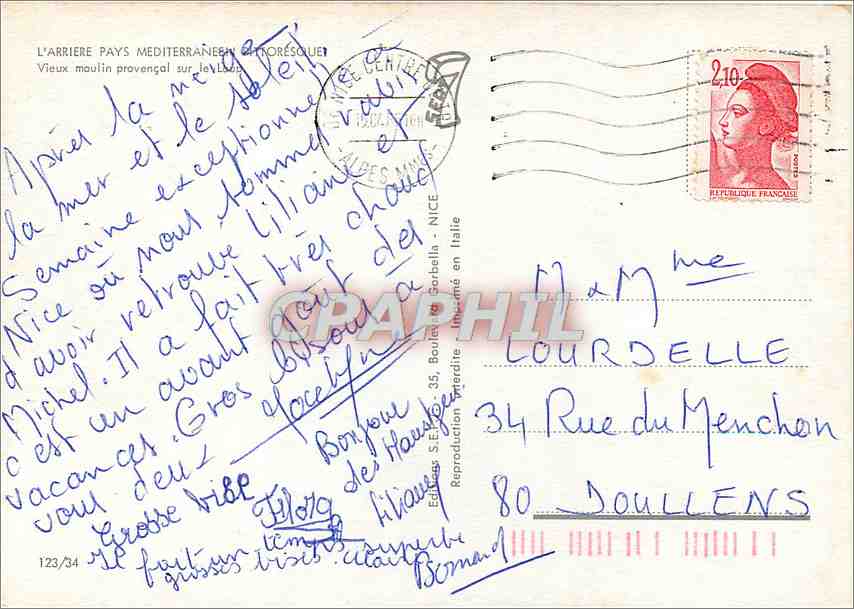 L'ARRIERE PAYS MEDITERRANEEN PITTORESQUE
Vieux moulin provençal sur le Loup
Après la neige
la mer et le soleil!
Semaine exceptionnelle à
Nice où nous sommes ravis
d'avoir retrouvé Liliane et
Michel. Il a fait très chaud
c'est un avant goût des
vacances. Gros bisous à
vous deux Jocelyne
Grosse bise
Flora
Bonjour
des
Liliane
Il fait un temps superbe
grosses bises
Bernard
123/34
NICE CENTRE
ALPES MMES
2,10
POSTES
REPUBLIQUE FRANÇAISE
Editions S.E.P.T. - 35, Boulevard Gorbella - NICE
Reproduction Interdite Imprimé en Italie
CPAPHIL
M & Mme
LOURDELLE
34 Rue du Menchon
80 DOULLENS